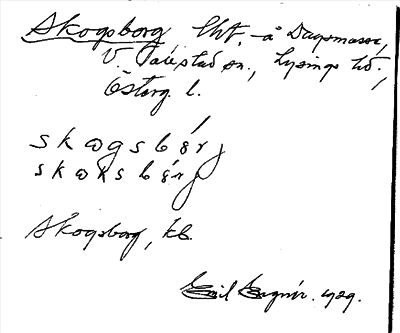 Skogsborg, lht, å Dagsmosse,
V. Tollstad sn., Lysings hd.,
Österg. l.
skogsbórj
skoksbórj
Skogsborg, kb.
1929.